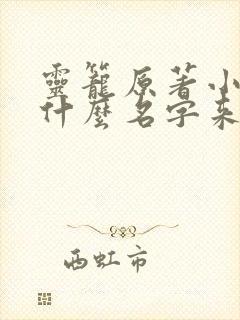 靈籠原著小
什麼名字來
西虹市